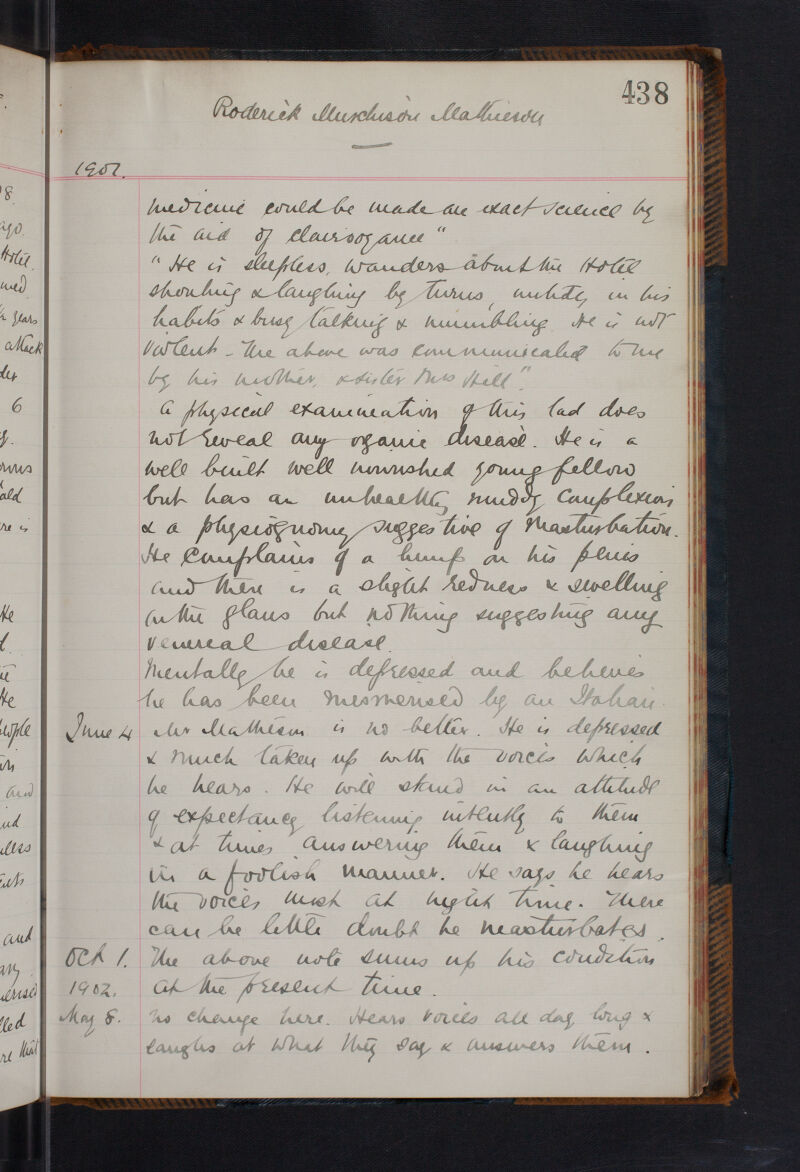 438
Roderick Murchison Mathieson
1901.
medicine could be made an exact science by
the aid of clairvoyance"
"He is sleepless, wanders about the Hotel
shouting & laughing by turns, untidy in his
habits & busy talking & mumbling. He is not
violent - The above was communicated to me
by his mother, & sister Mrs Hill".
A physical examination of this lad does
not reveal any organic disease. He is a
well built well nourished young fellow
but has an unhealthy muddy complexion
& a physiognomy suggestive of Masturbation.
He complains of a lump on his penis
and there is a slight redness & swelling
on the glans but nothing suggesting any
venereal disease.
Mentally he is depressed and believes
he has been mesmerised by an Italian.
June 4 Mr Mathieson is no better. He is depressed
& much taken up with the voices which
he hears. He will stand in an attitude
of expectancy listening intently to them
& at times answering them & laughing
in a foolish manner. He says he hears
the voices most at night time. There
can be little doubt he masturbates.
Oct 1. The above note sums up his condition
1902. at the present time.
May 8. No change here. Hears voices all day long &
laughs at what they say & answers them.